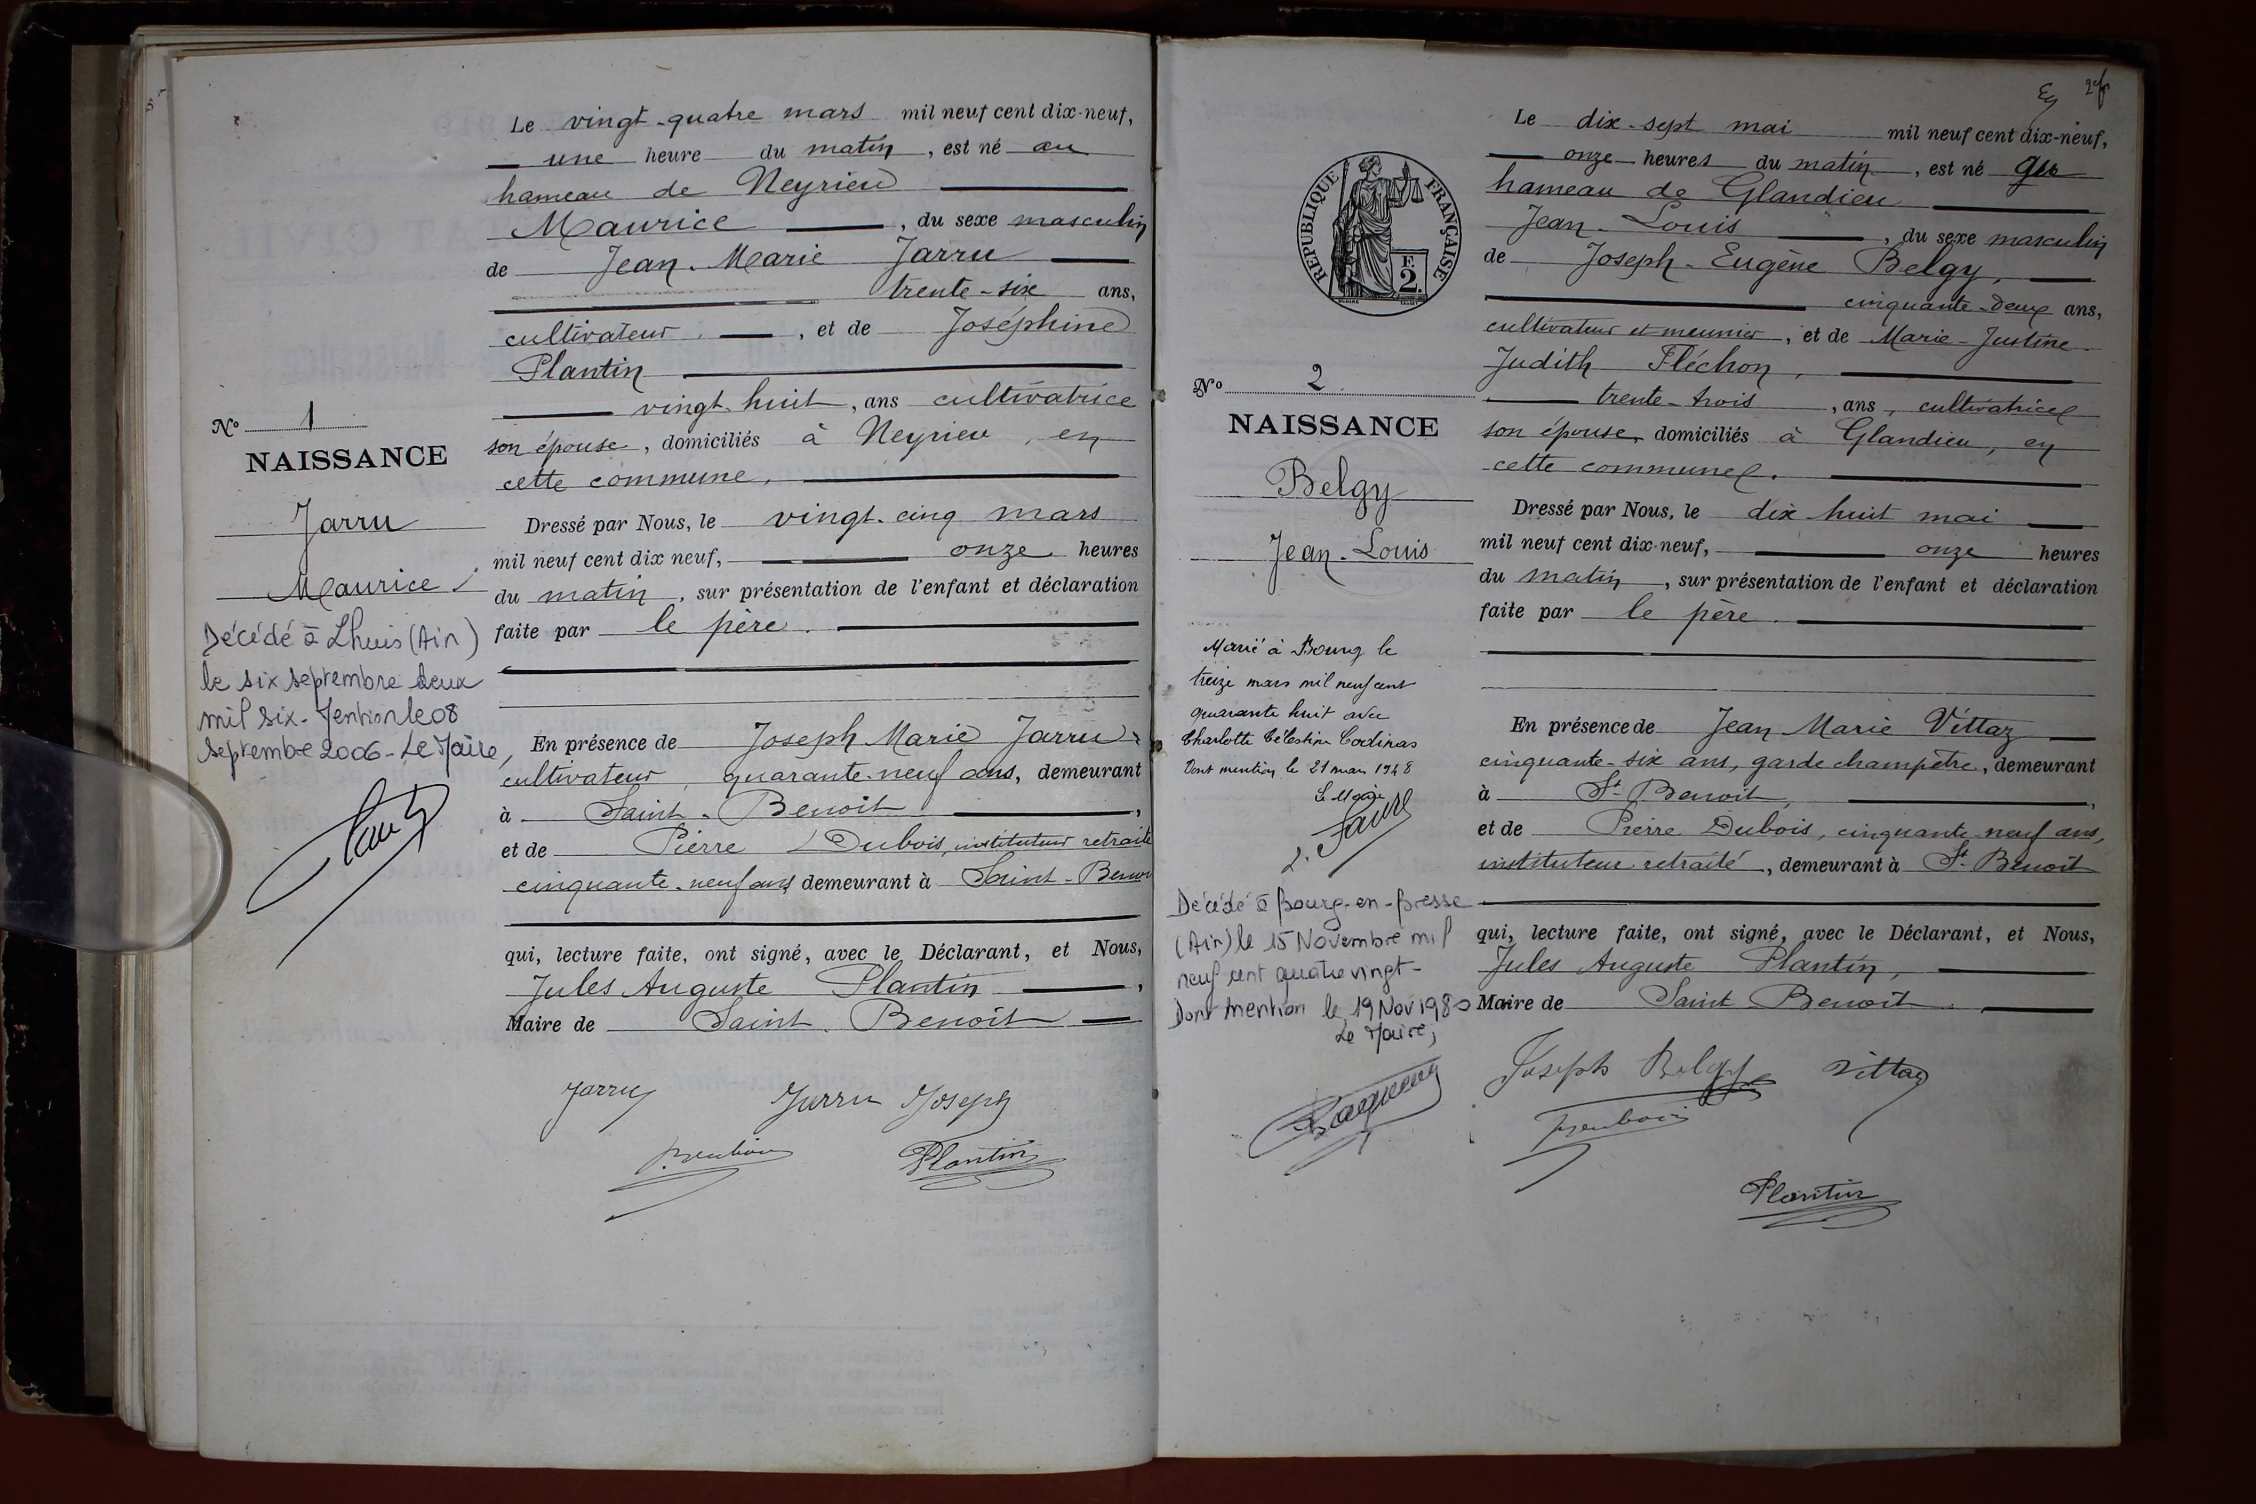 Le vingt-quatre mars mil neuf cent dix-neuf,
une heure du matin, est né au
hameau de Neyrieu
Maurice, du sexe masculin
de Jean-Marie Jarru
trente-six ans,
cultivateur, et de Joséphine
Plantin
vingt-huit, ans cultivatrice
son épouse, domiciliés à Neyrieu, en
cette commune.
Dressé par Nous, le vingt-cinq mars
mil neuf cent dix neuf, onze heures
du matin, sur présentation de l'enfant et déclaration
faite par le père.
En présence de Joseph Marie Jarru
cultivateur, quarante-neuf ans, demeurant
à Saint-Benoit,
et de Pierre Dubois, instituteur retraité
cinquante-neuf ans demeurant à Saint-Benoit
qui, lecture faite, ont signé, avec le Déclarant, et Nous,
Jules Auguste Plantin,
Maire de Saint-Benoît
Jarru
Jarru Joseph
Plantin
No 1
NAISSANCE
Jarru
Maurice
Décédé à Lhuis (Ain)
le six septembre deux
mil six - Mention le 08
Septembre 2006 - Le Maire,
REPUBLIQUE FRANÇAISE
F.
2.
No 2
NAISSANCE
Belgy
Jean-Louis
Marié à Bourg le
treize mars mil neuf cent
quarante huit avec
Charlotte Célestine Codinas
Dont mention le 21 mars 1948
Le Maire
Décédé à Bourg-en-Bresse
(Ain) le 15 Novembre mil
neuf cent quatre vingt-
Dont mention le 19 Nov 1980
Le Maire,
2
Le dix-sept mai mil neuf cent dix-neuf,
onze heures du matin, est né au
hameau de Glandieu
Jean-Louis, du sexe masculin
de Joseph-Eugène Belgy,
cinquante-deux ans,
cultivateur et meunier, et de Marie-Justine
Judith Fléchon,
trente-trois, ans, cultivatrice
son épouse, domiciliés à Glandieu, en
cette commune.
Dressé par Nous, le dix huit mai
mil neuf cent dix-neuf, onze heures
du matin, sur présentation de l'enfant et déclaration
faite par le père.
En présence de Jean Marie Vittaz
cinquante-six ans, garde champêtre, demeurant
à St Benoit,
et de Pierre Dubois, cinquante-neuf ans,
instituteur retraité, demeurant à St-Benoit
qui, lecture faite, ont signé, avec le Déclarant, et Nous,
Jules Auguste Plantin,
Maire de Saint Benoît.
Joseph Belgy
Vittaz
Plantin